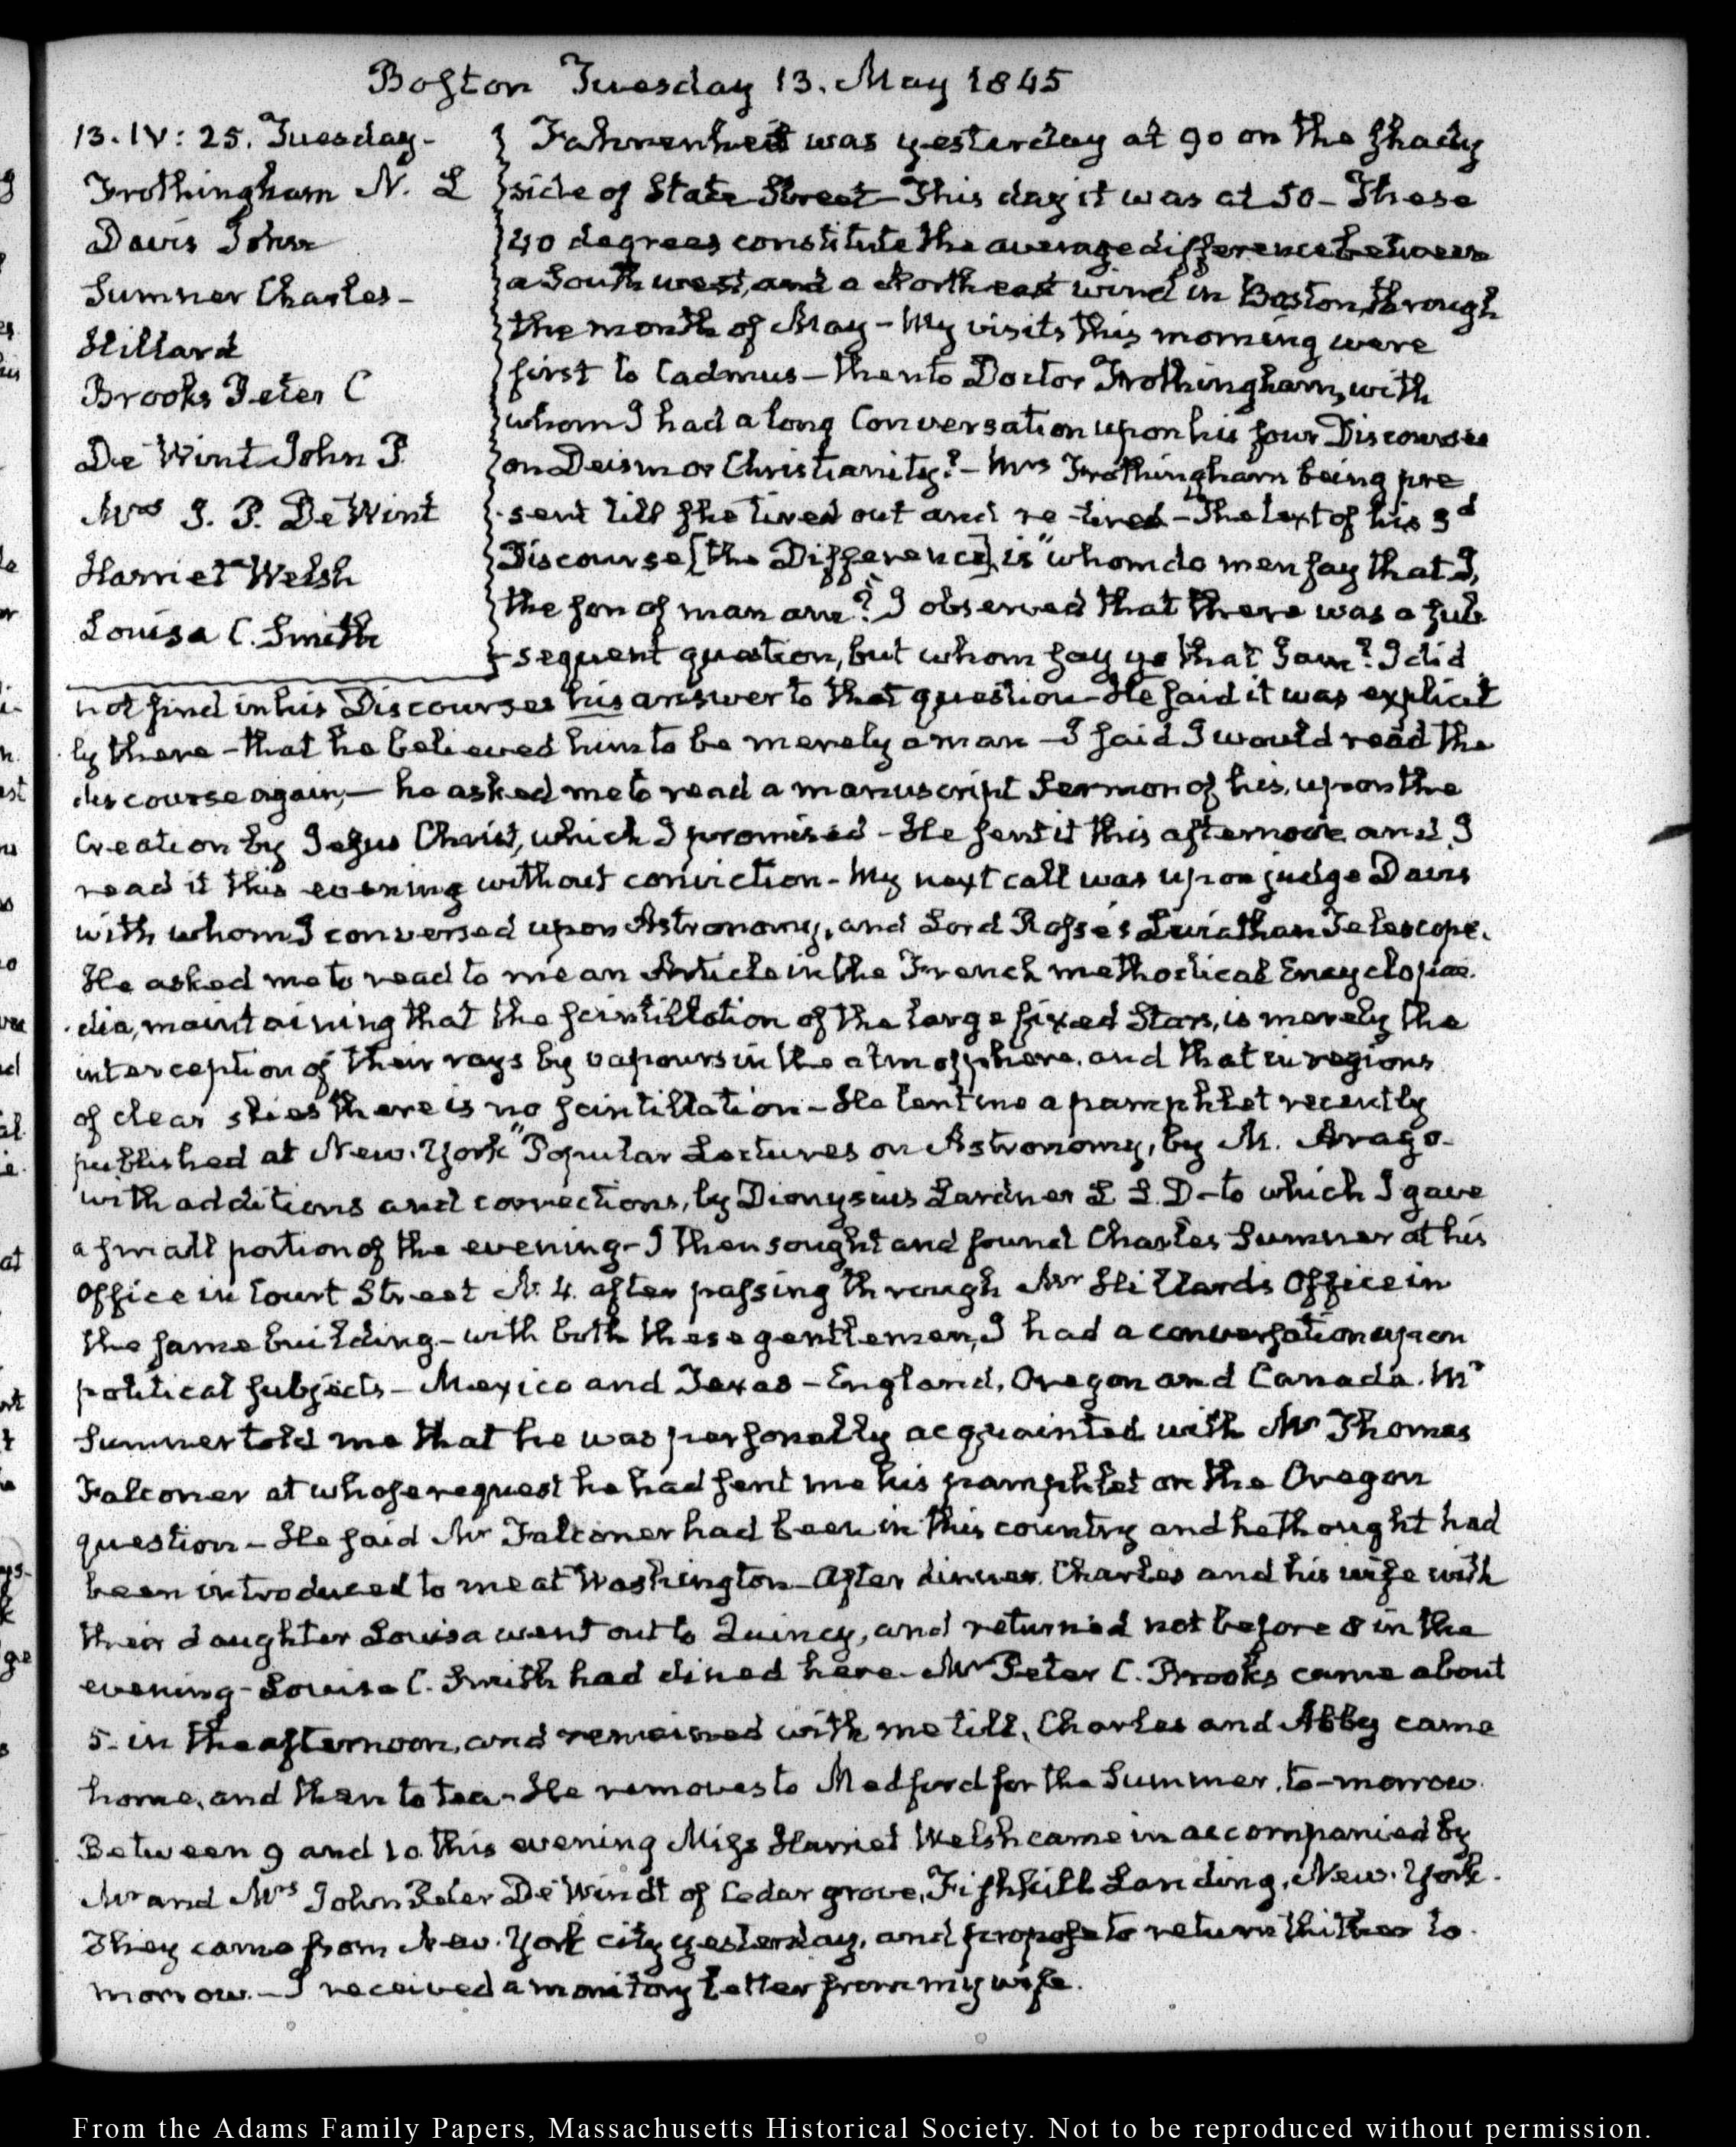 Boston Tuesday 13. May 1845
13. IV: 25. Tuesday-
Frothingham N. L
Davis John
Sumner Charles-
Hillard
Brooks Peter C
De Wint John P.
Mrs J. P. De Wint
Harriet Welsh
Louisa C. Smith
Fahrenheit was yesterday at 90 on the shady
side of State Street- This day it was at 50- These
40 degrees constitute the average difference between
a South west, and a North east wind in Boston, through
the month of May- My visits this morning were
first to Cadmus- then to Doctor Frothingham, with
whom I had a long Conversation upon his four Discourses
on Deism or Christianity?- Mrs Frothingham being pre
-sent till she tired out and re-tired- The text of his 3d
Discourse [the Difference], is "whom do men say that I,
the son of man am? I observed that there was a sub
-sequent question, but whom say ye that I am? I did
not find in his Discourses his answer to that question- He said it was explicit
ly there- that he believed him to be merely a man- I said I would read the
discourse again,- he asked me to read a manuscript Sermon of his, upon the
Creation by Jesus Christ, which I promised- He sent it this afternoon and I
read it this evening without conviction- My next call was upon judge Davis
with whom I conversed upon Astronomy, and Lord Rosse's Liviathan Telescope.
He asked me to read to me an Article in the French methodical Encyclopae.
-dia, maintaining that the scintillation of the large fixed Stars, is merely the
interception of their rays by vapours in the atmosphere. and that in regions
of clear skies there is no scintillation- He lent me a pamphlet recently
published at New-York "Popular Lectures on Astronomy, by M. Arago-
with additions and corrections, by Dionysius Lardner L L. D- to which I gave
a small portion of the evening- I then sought and found Charles Sumner at his
Office in Court Street N. 4. after passing through Mr Hillard's Office in
the same building- with both these gentlemen, I had a conversation upon
political subjects- Mexico and Texas- England, Oregon and Canada. Mr
Sumner told me that he was personally acquainted with Mr Thomas
Falconer at whose request he had sent me his pamphlet on the Oregon
question- He said Mr Falconer had been in this country and he thought had
been introduced to me at Washington- After dinner. Charles and his wife with
their daughter Louisa went out to Quincy, and returned not before 8 in the
evening- Louisa C. Smith had dined here- Mr Peter C. Brooks came about
5. in the afternoon, and remained with me till, Charles and Abby came
home, and then to tea- He removes to Medford for the Summer, to-morrow.
Between 9 and 10. this evening Miss Harriet Welsh came in accompanied by
Mr and Mrs John Peter De Windt of Cedar grove, Fishkill Landing, New-York.
They came from New-York city yesterday, and propose to return thither to
morrow.- I received a monitory letter from my wife.
From the Adams Family Papers, Massachusetts Historical Society. Not to be reproduced without permission.